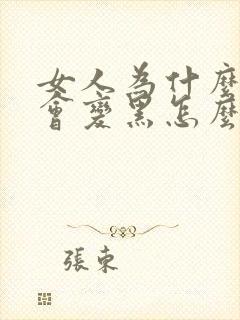 女人為什麼
會變黑怎麼
張東